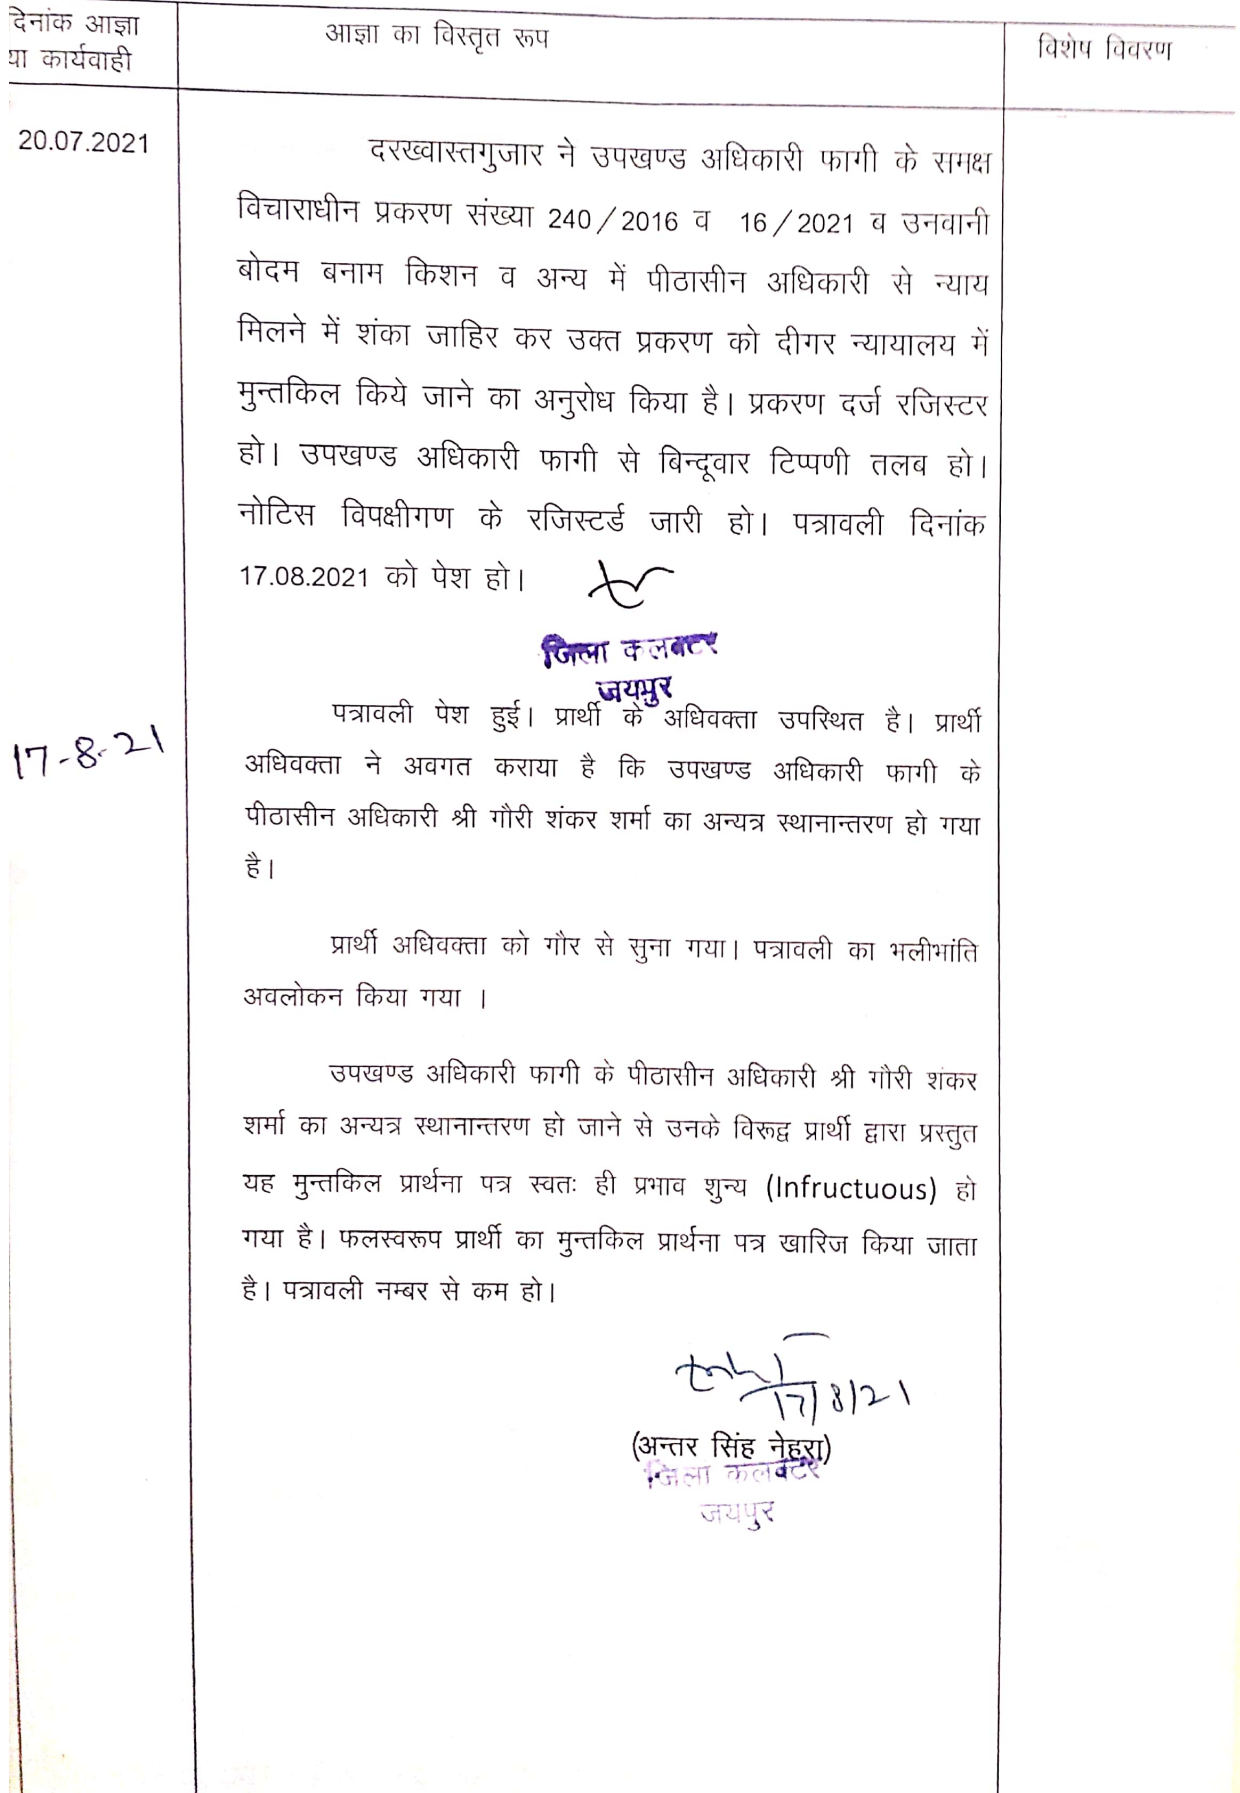 दिनांक आज्ञा
या कार्यवाही
आज्ञा का विस्तृत रूप
विशेष विवरण
20.07.2021
दरख्वास्तगुजार ने उपखण्ड अधिकारी फागी के समक्ष
विचाराधीन प्रकरण संख्या 240/2016 व 16/2021 व उनवानी
बोदम बनाम किशन व अन्य में पीठासीन अधिकारी से न्याय
मिलने में शंका जाहिर कर उक्त प्रकरण को दीगर न्यायालय में
मुन्तकिल किये जाने का अनुरोध किया है। प्रकरण दर्ज रजिस्टर
हो। उपखण्ड अधिकारी फागी से बिन्दूवार टिप्पणी तलब हो।
नोटिस विपक्षीगण के रजिस्टर्ड जारी हो। पत्रावली दिनांक
17.08.2021 को पेश हो।
जिला कलक्टर
जयपुर
17-8-21
पत्रावली पेश हुई। प्रार्थी के अधिवक्ता उपस्थित है। प्रार्थी
अधिवक्ता ने अवगत कराया है कि उपखण्ड अधिकारी फागी के
पीठासीन अधिकारी श्री गौरी शंकर शर्मा का अन्यत्र स्थानान्तरण हो गया
है।
प्रार्थी अधिवक्ता को गौर से सुना गया। पत्रावली का भलीभांति
अवलोकन किया गया ।
उपखण्ड अधिकारी फागी के पीठासीन अधिकारी श्री गौरी शंकर
शर्मा का अन्यत्र स्थानान्तरण हो जाने से उनके विरूद्व प्रार्थी द्वारा प्रस्तुत
यह मुन्तकिल प्रार्थना पत्र स्वतः ही प्रभाव शुन्य (Infructuous) हो
गया है। फलस्वरूप प्रार्थी का मुन्तकिल प्रार्थना पत्र खारिज किया जाता
है। पत्रावली नम्बर से कम हो।
17/8/21
(अन्तर सिंह नेहरा)
जिला कलक्टर
जयपुर